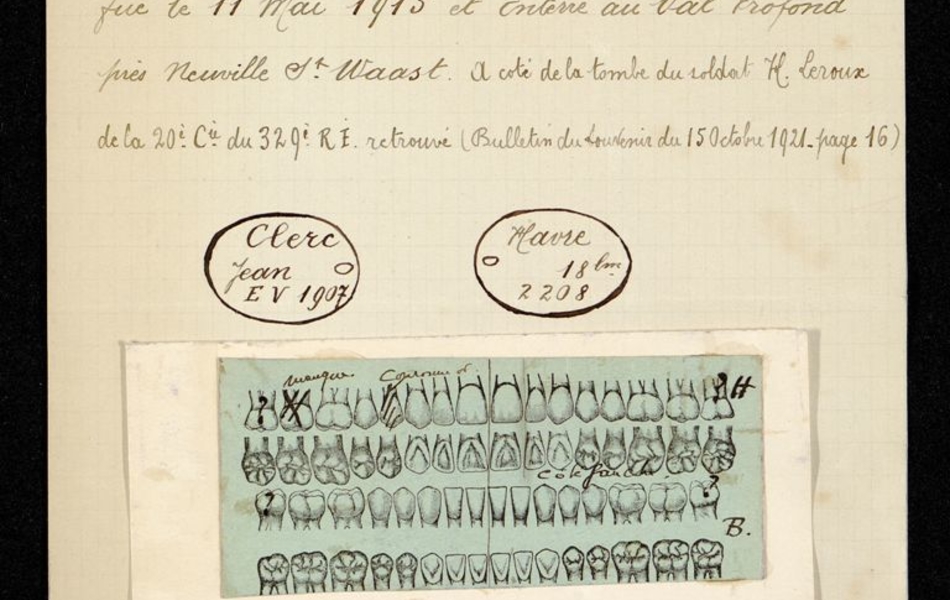 fue le 11 Mai 1915 et enterré au Val Profond
près Neuville St Waast. A coté de la tombe du soldat H. Leroux
de la 20è Cie du 329è R I. retrouvé (Bulletin du Souvenir du 15 Octobre 1921 - page 16)
Clerc
Jean
E V 1907
Havre
18 lm
2208
manque Couronne or
? ? H
côté gauche
? ?
B.